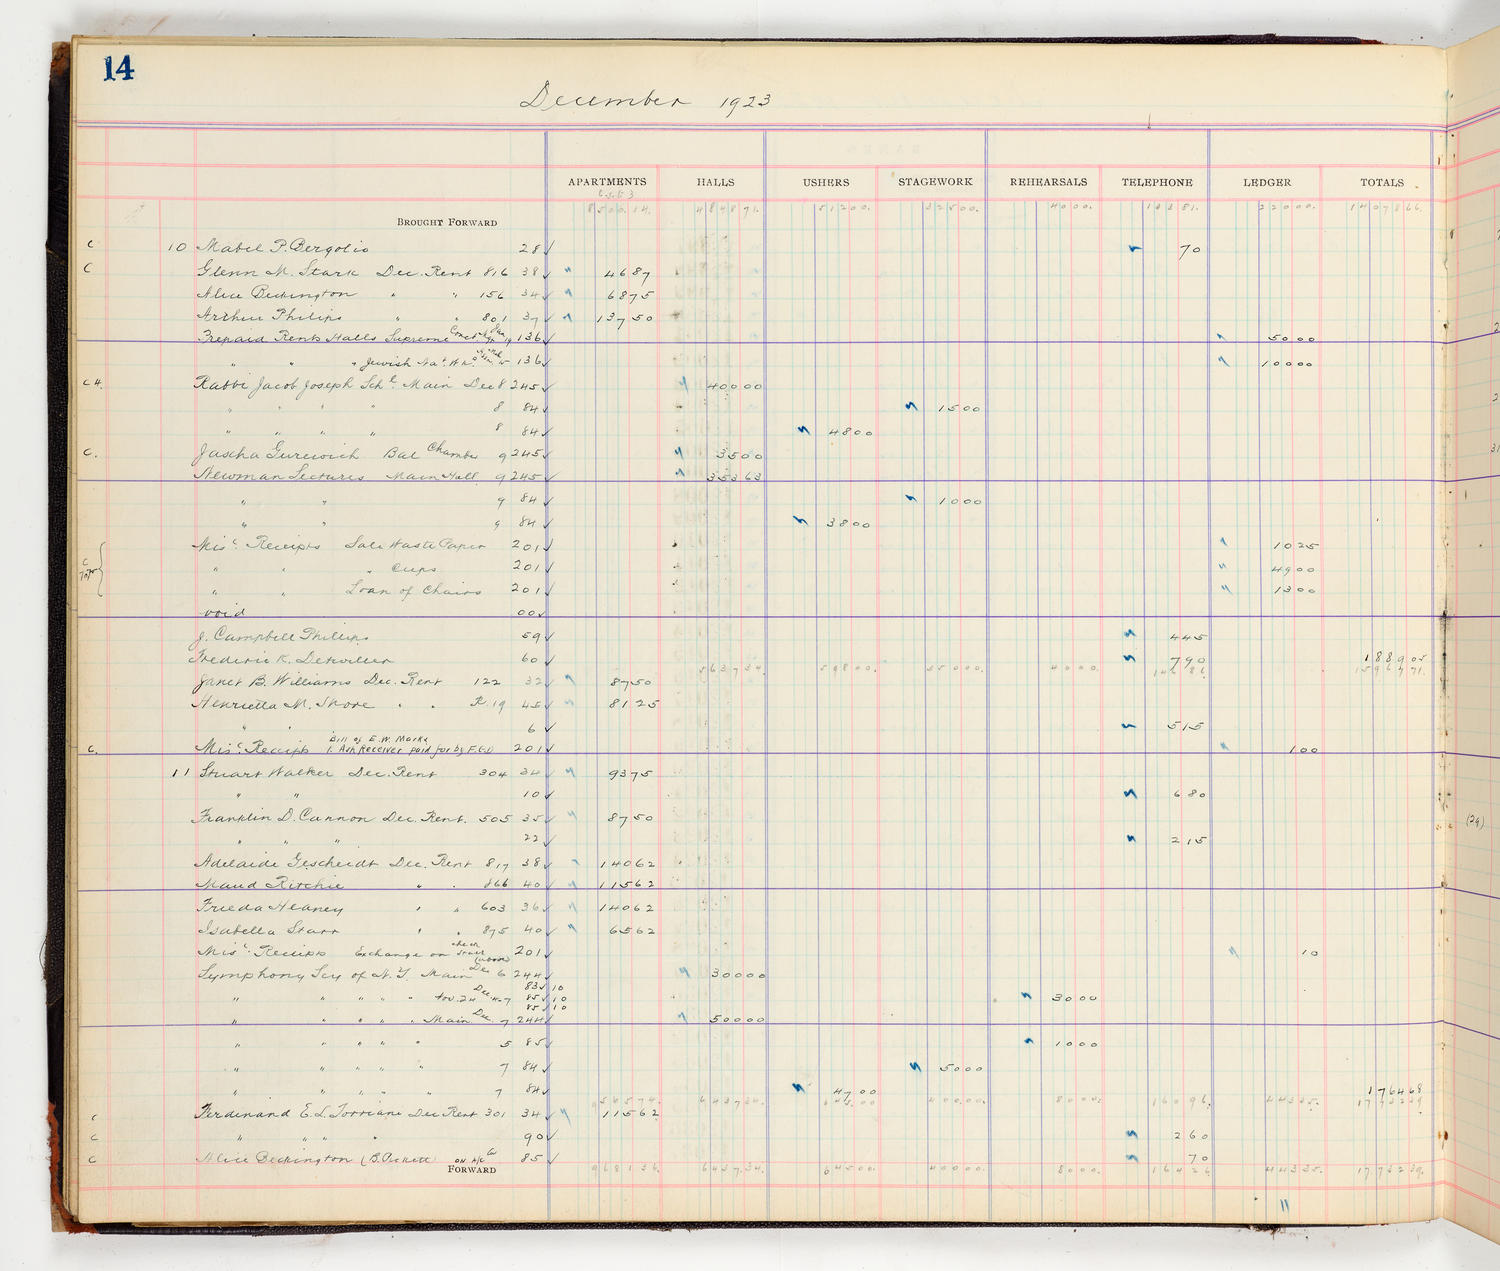 14
December 1923
APARTMENTS HALLS USHERS STAGEWORK REHEARSALS TELEPHONE LEDGER TOTALS
BROUGHT FORWARD 8500.14. 484871. 51200. 32500. 4000. 13351. 22000. 1407866.
C 10 Mabel P. Bergolio 28 ✓ 70
C Glenn M. Stark Dec. Rent 816 38 ✓ 4687
Alice Beckington " " 156 34 ✓ 6875
Arthur Philips " " 801 37 ✓ 13750
Prepaid Rents Halls Supreme 136 ✓ 5000
" " " Jewish Nat. 136 ✓ 10000
C H. Rabbi Jacob Joseph Schl. Main Dec 8 245 ✓ 40000
" " " " 8 84 ✓ 1500
" " " " 8 84 ✓ 4800
C. Jascha Gurewich Bal Chamber 9 245 ✓ 3500
Newman Lectures Main Hall 9 245 ✓ 35363
" " 9 84 ✓ 1000
" " 9 84 ✓ 3800
Misc. Receipts Sale Waste Paper 201 ✓ 1025
C " " " Cups 201 ✓ 4900
" " Loan of Chairs 201 ✓ 1300
void 00 ✓
J. Campbell Phillips 59 ✓ 445
Frederic K. Detwiller 60 ✓ 790 188905
563734. 59800. 35000. 4000. 14686. 1596771.
Janet B. Williams Dec. Rent 122 32 ✓ 8750
Henrietta M. Shore " " R. 19 45 ✓ 8125
" " 6 ✓ 515
Bill of E. W. Marks
C. Misc. Receipts 1 Ash Receiver paid for by F.G.D 201 ✓ 100
11 Stuart Walker Dec. Rent 304 34 ✓ 9375
" " 10 ✓ 680
Franklin D. Cannon Dec. Rent. 505 35 ✓ 8750
" " " 22 ✓ 215
Adelaide Gescheidt Dec. Rent 817 38 ✓ 14062
Maud Ritchie " " 866 40 ✓ 11562
Frieda Heaney " " 603 36 ✓ 14062
Isabella Starr " " 875 40 ✓ 6562
Misc. Receipts Exchange on check (above) 201 ✓ 10
Symphony Scy of N. Y. Main Dec 6 244 ✓ 30000
83 ✓ 10
" " " " " Nov. 24 Dec. 4-7 85 ✓ 10 3000
85 ✓ 10
" " " " " Main Dec. 7 244 ✓ 50000
" " " " " 5 85 ✓ 1000
" " " " " 7 84 ✓ 5000
" " " " " 7 84 ✓ 4700 176468
956574. 643734. 64500. 40000. 8000. 16096. 44335. 1773239
C Ferdinand E. L. Torriani Dec Rent 301 34 ✓ 11562
C " " " " 90 ✓ 260
C Alice Beckington (B. Pickett) on a/c 85 ✓ 70
FORWARD 968136. 643734. 64500. 40000. 8000. 16426. 44335. 1773239.
(24)